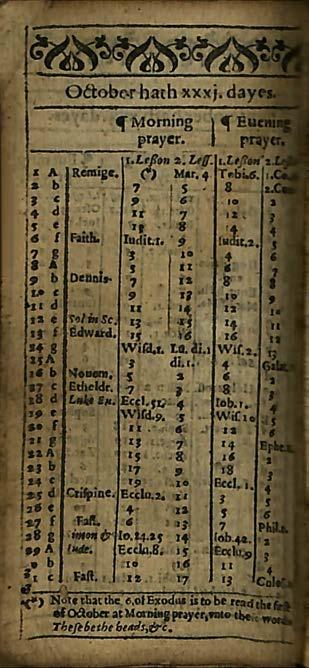 October hath xxxj. dayes.
¶ Morning ¶ Euening
prayer. prayer.
1. Lesson 2. Less. 1. Lesson
1 A Remige. (*) Mar. 4 Tobi. 6.
2 b 7 5 8
3 c 9 6 10 2
4 d 11 7 12 3
5 e 13 8 4
6 f Faith. Iudit. 1. 9 Iudit. 2.
7 g 3 10 4 6
8 A 5 11 6 7
9 b Dennis. 7 12 8
10 c 9 13 10 9
11 d 11 14 12 10
12 e Sol in Sc. 13 15 14 11
13 f Edward. 15 16 16 12
14 g Wisd. 1. Lu. di. 1 Wis. 2. 13
15 A 3 di. 1. 4
16 b Nouem. 5 2 6
17 c Etheldr. 7 3 8
18 d Luke Eu. Eccl. 51. 4 Iob. 1.
19 e Wisd. 9. 5 Wis. 10
20 f 11 6 12 6
21 g 13 7 14
22 A 15 8 16 2
23 b 17 9 18 3
24 c 19 10 Eccl. 1. 4
25 d Crispine. Ecclu. 2. 11 3 5
26 e 4 12 5 6
27 f Fast. 6 13 7 Phil. 1.
28 g Io. 24.25 14 Iob. 42. 2
29 A Iude. Ecclu. 8. 15 Ecclu. 9 3
b 10 16 11 4
c Fast. 12 17 13
(*) Note that the 6. of Exodus is to be read the first
of October at Morning prayer, vnto the words
These be the heads, &c.